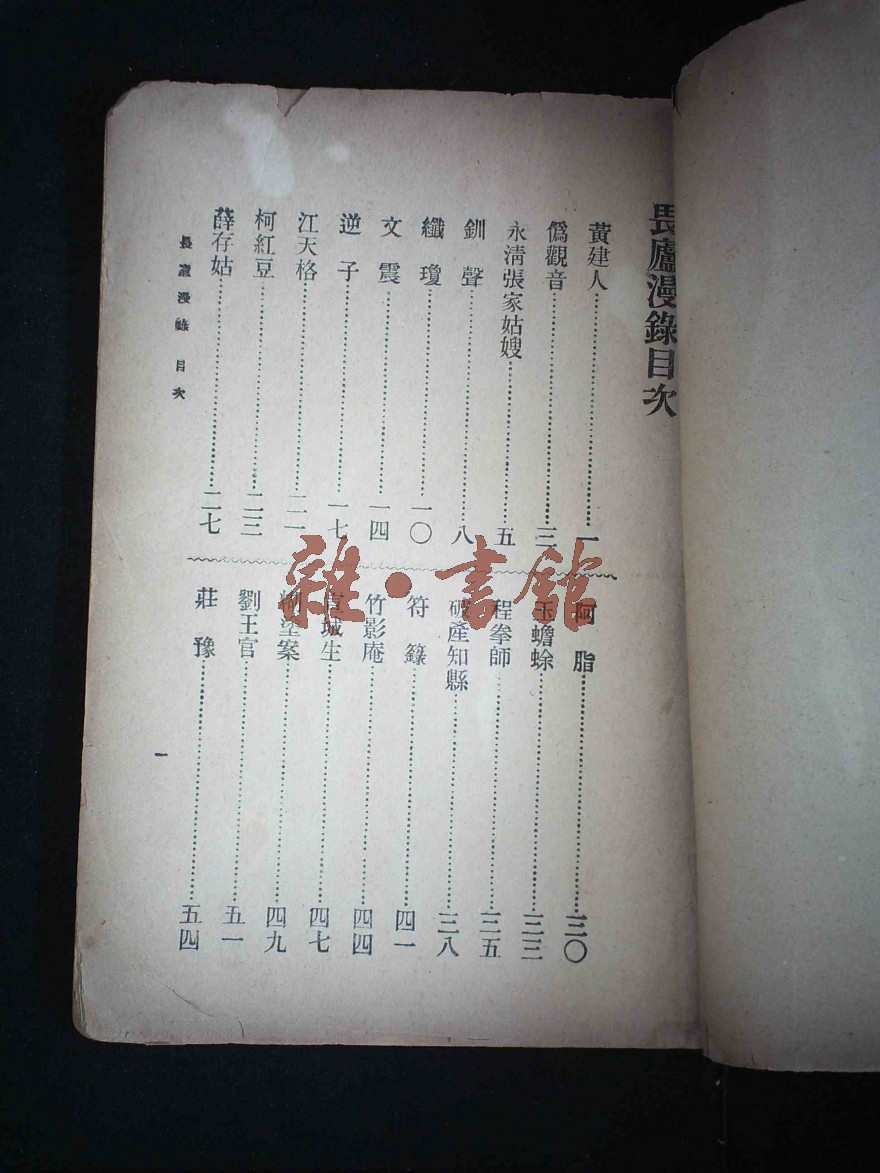 畏廬漫錄目次
黃建人……一
僞觀音……三
永淸張家姑嫂……五
釧聲……八
纖瓊……一〇
文震……一四
逆子……一七
江天格……二一
柯紅豆……二三
薛存姑……二七
阿脂……三〇
玉蟾蜍……三三
程拳師……三五
破產知縣……三八
符籙……四一
竹影庵……四四
盧城生……四七
糊塗案……四九
劉王官……五一
莊豫……五四
畏廬漫錄 目次
一
雜·書館